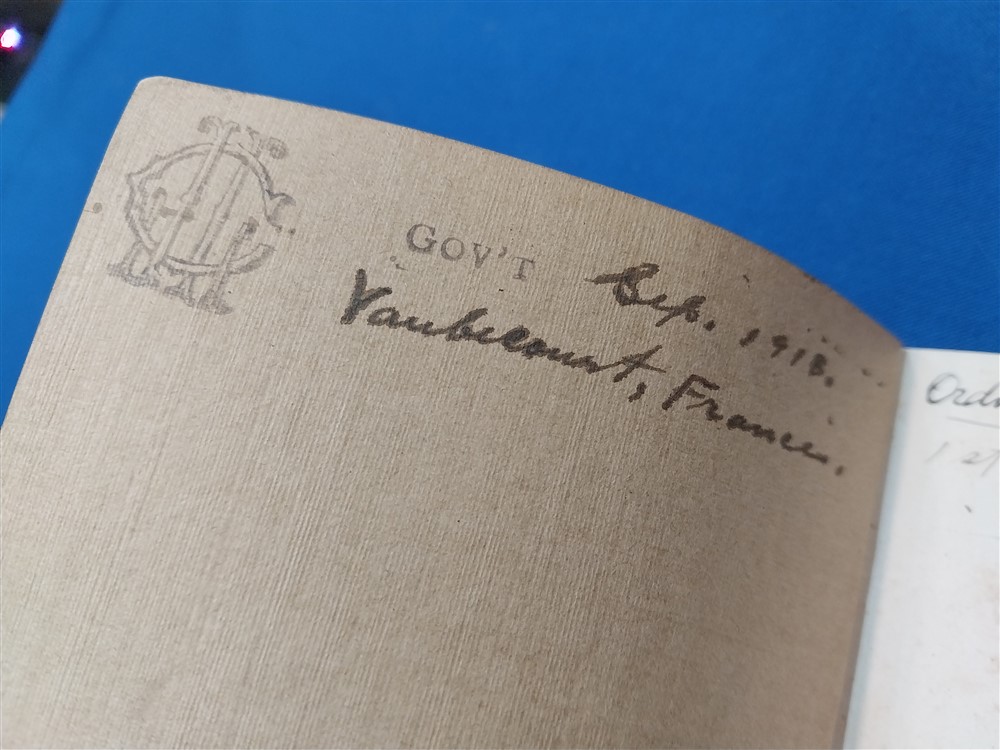 GOV'T
Sep. 1918.
Vaubecourt, France.